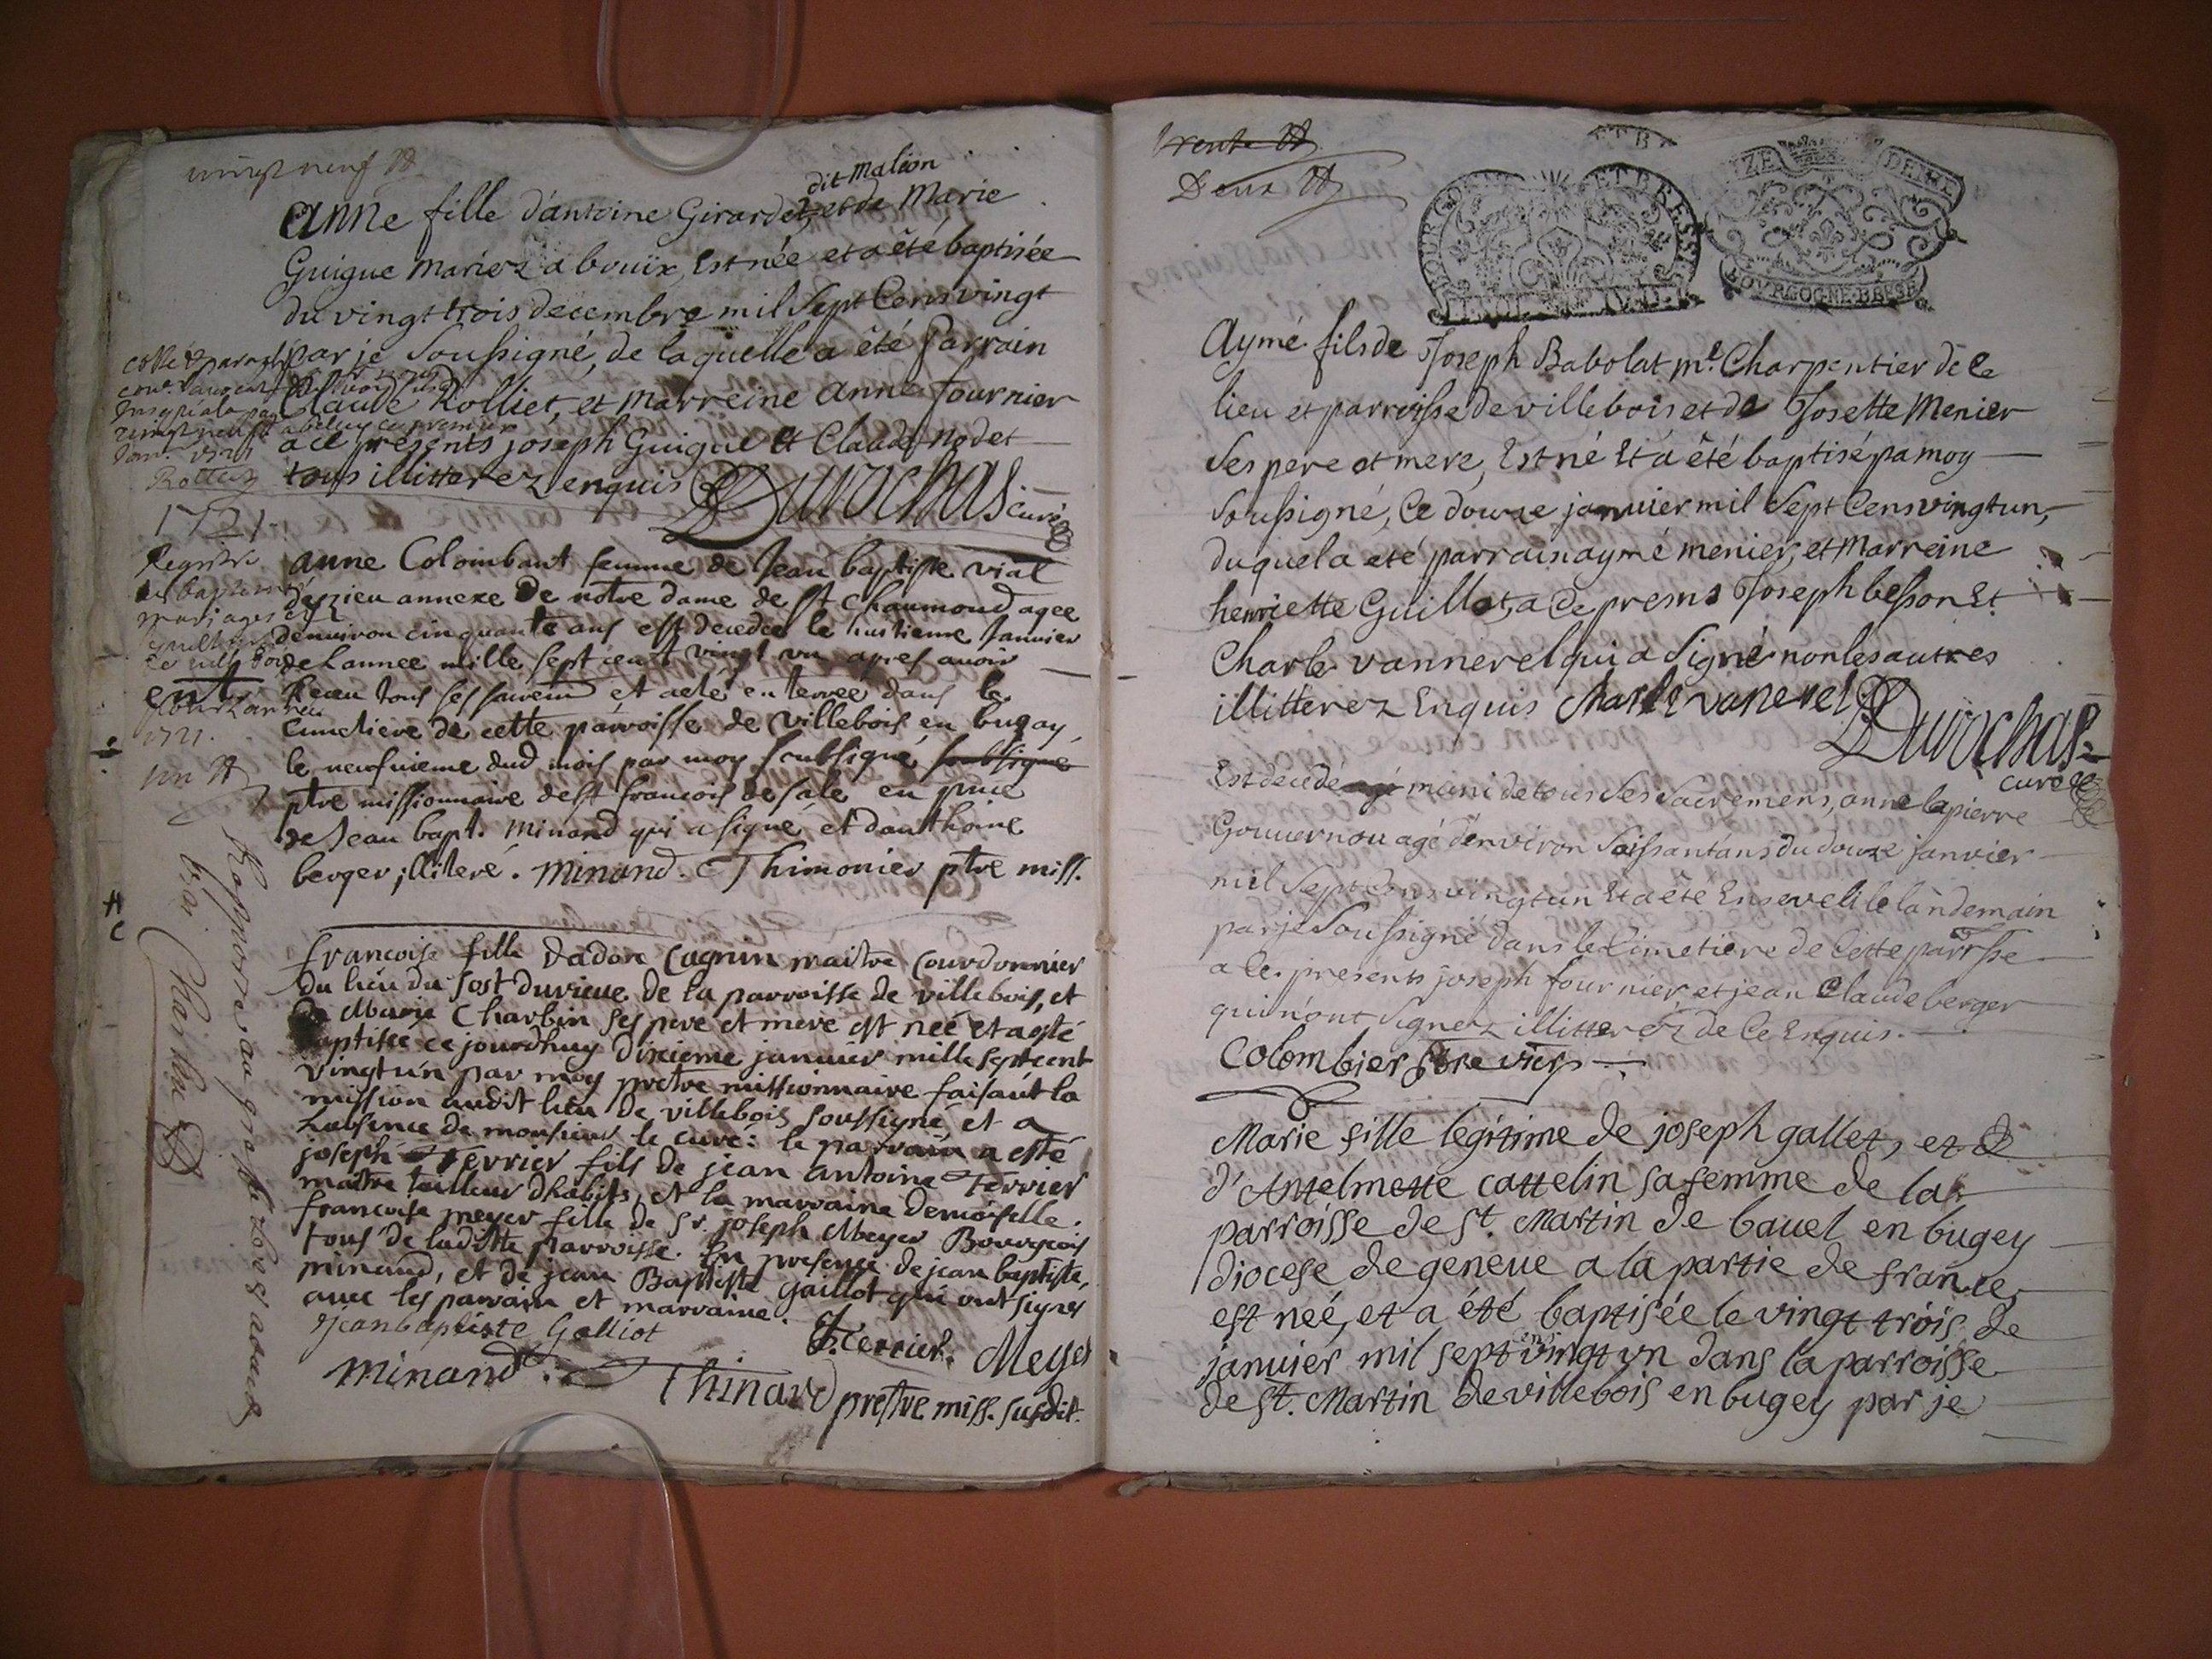 vingt neuf
dit malion
anne fille d'antoine Girardet, et de Marie
Guigue mariez a bouïx, Est née et a êté baptisée
du vingt trois decembre mil Sept Cens vingt
par je Soussigné, de laquelle a êté Parrain
Claude Rolliet, et Marreine anne fournier
a ce presents joseph Guigue et Claude nodet
tous illitterez enquis Durochas curé
1721
Registre
de baptemes
mariages et
de villebois
pour l'année
1721.
un
anne Colombant femme de Jean baptiste vial
d'izieu annexe De notre dame de St Chaumond agee
denviron cinquante ans est decedee le huitieme Januier
de Lannee mille sept cent vingt un apres auoir
Receu tous ses sacrem et a eté enterree dans le
cimetiere de cette parroisse de villebois en bugay,
le neufuieme dud mois par moy soubsigné soubsigne
ptre missionnaire de st francois de sale en pnce
de Jean bapt. Minand qui a signé et danthoine
berger illiteré. Minand. Thimonier ptre miss.
francoise fille dadon Cagnin maitre Courdonnier
du lieu du de la parroisse de villebois, et
de Marie Charbin ses pere et mere est neé et a esté
baptisée ce jourdhuy dixieme januier mille septcent
vingt un par moy pretre missionnaire faisant la
mission audit lieu de villebois soussigné et a
Labsence de monsieur le curé: le parrain a esté
joseph Terrier fils de jean antoine Terrier
maitre tailleur dhabits, et la marraine demoiselle
francoise meyer fille de Sr. joseph Meyer Bourgeois
tous de laditte parroisse. En presence de jean baptiste
minand, et de jean Baptiste Gaillot qui ont signés
auec les parrain et marraine.
Jean baptiste Galliot J. Terrier. Meyer
Minand. Thinard prestre miss. susdit.
trente
Deux
BOURGOGNE ET BRESSE
BOURGOGNE. BRESSE
Aymé fils de Joseph Babolat me. Charpentier de ce
lieu et parroisse de villebois et de Josette Menier
Ses pere et mere, Est né Et a êté baptisé pa moy
Soussigné, Ce douze janvier mil Sept Cens vingt un,
duquel a eté parrain aymé menier, et Marreine
henriette Guillot, a Ce presns Joseph besson Et
Charle vannerel qui a Signé non les autres
illitterez Enquis Charle vanerel Durochas
curé
Est decedé muni de tous Ses Sacremens, anne lapierre
Gouuernou agé denviron Soissant ans du douze janvier
mil Sept Cens vingt un Et a ête Enseveli le landemain
par je Soussigné dans le Cimetiere de Cette parrsse
a ce presents joseph fournier, et jean Claude berger
qui nont Signez illitterez de Ce Enquis.
Colombier ptre vicr
Marie fille legitime de joseph gallet, et de
d'Antelmette cattelin sa femme de la
parroisse de St. Martin de bauel en bugey
diocese de geneue a la partie de france
est neé, et a été baptisée le vingt trois de
cens
januier mil sept vingt vn dans la parroisse
de St. Martin de villebois en bugey par je